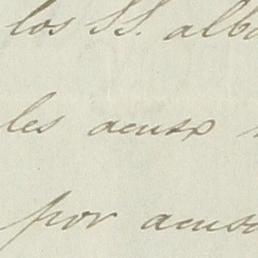 los SS. alba
les acuso
por acuso